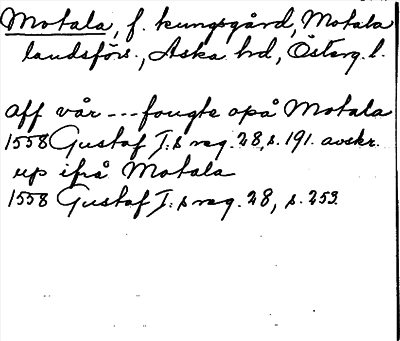 Motala, f. kungsgård, Motala
landsförs., Aska hd, Österg. l.
aff vår --- fougte opå Motala
1558 Gustaf I:s reg. 28, s. 191. avskr.
up ifrå Motala
1558 Gustaf I:s reg. 28, s. 253.